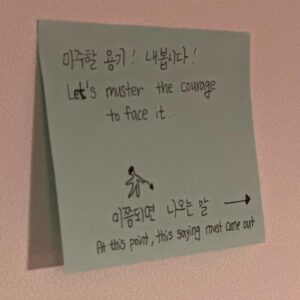 마주할 용기! 내봅시다!
Let's muster the courage
to face it.
이쯤되면 나오는 말 →
At this point, this saying must come out